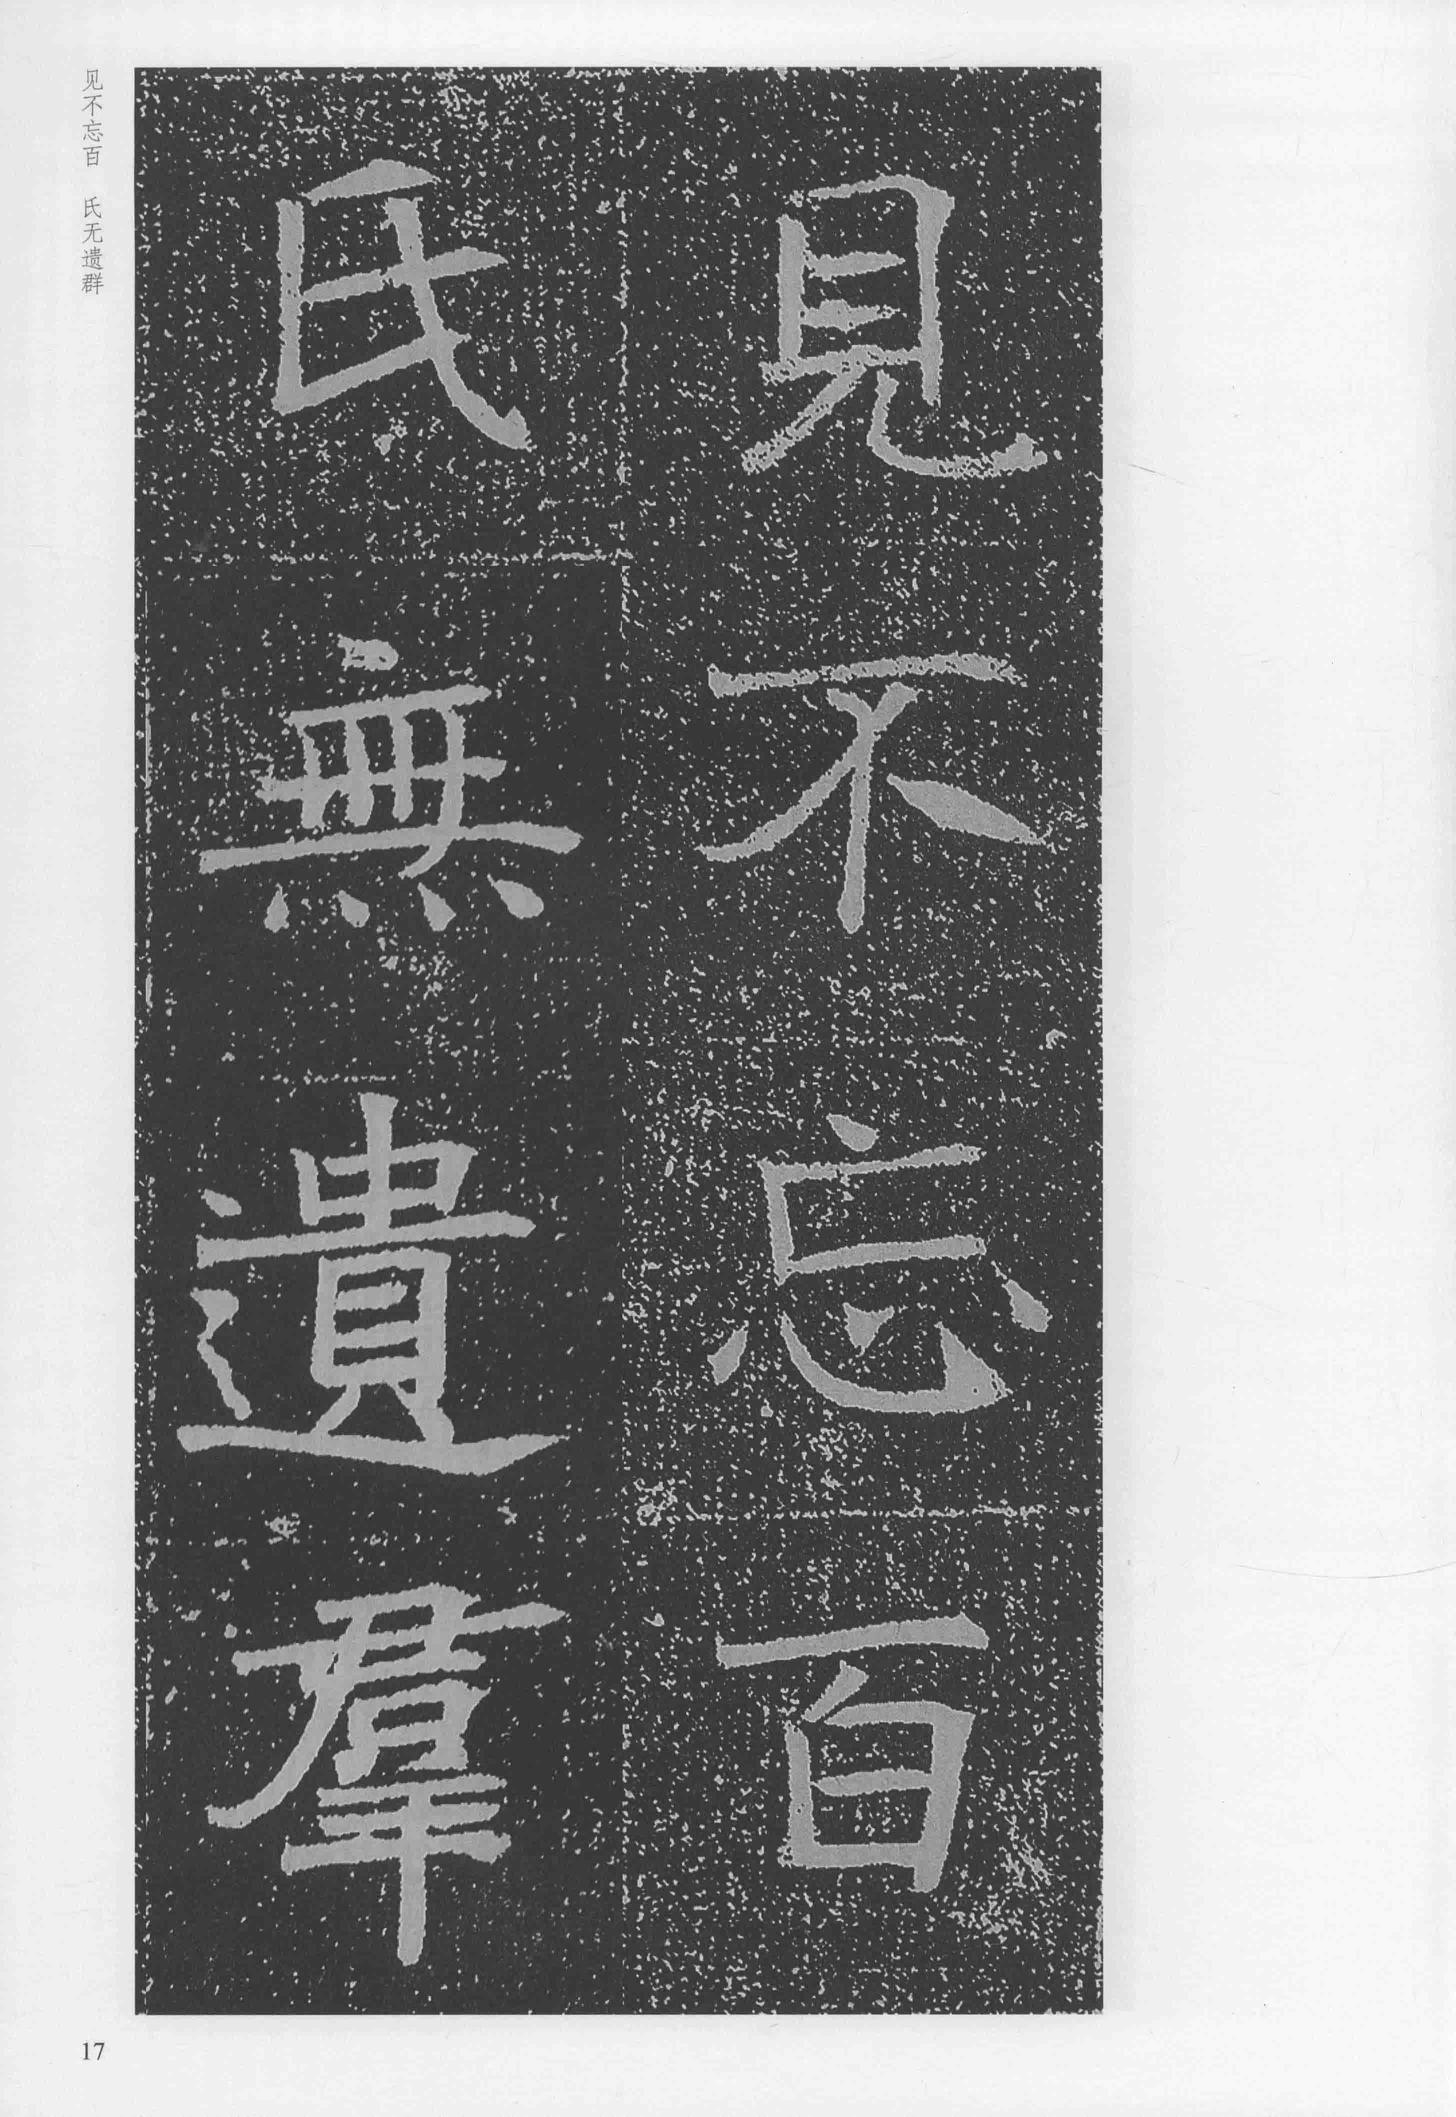 見不忘百
氏無遺羣
见不忘百 氏无遗群
17